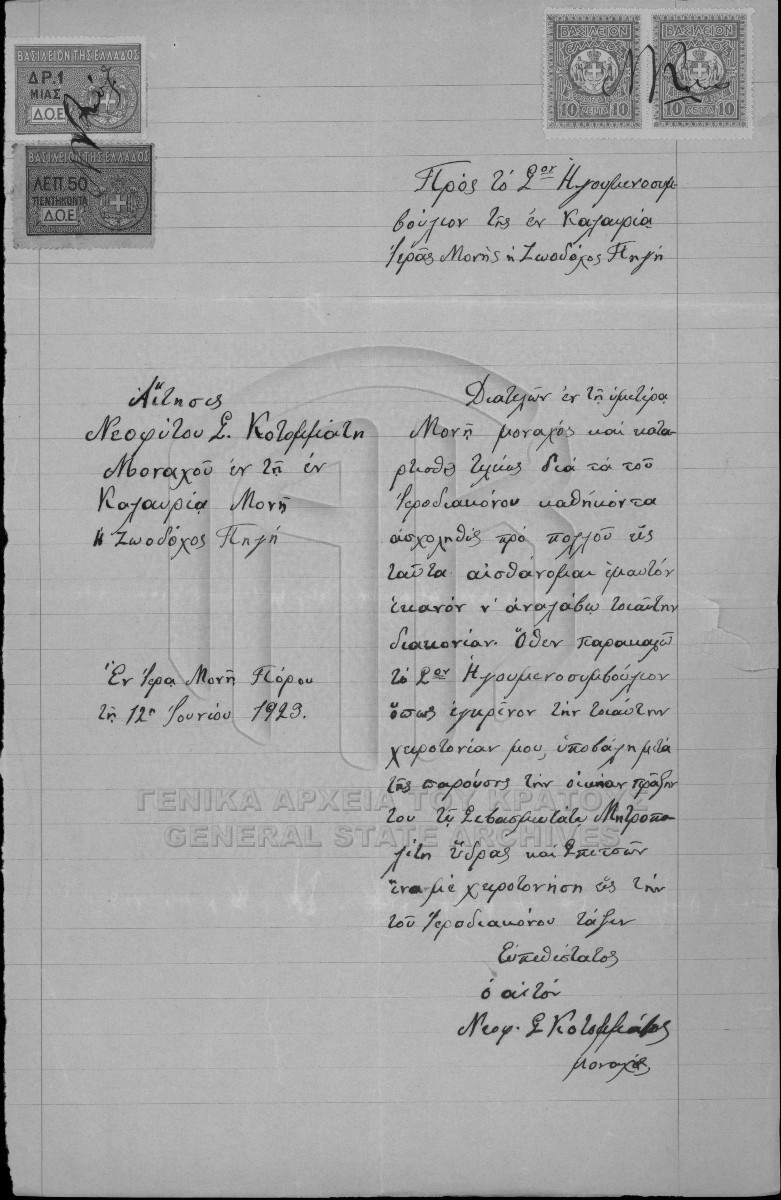 ΒΑΣΙΛΕΙΟΝ ΤΗΣ ΕΛΛΑΔΟΣ
ΔΡ. 1
ΜΙΑΣ
Δ.Ο.Ε.
ΒΑΣΙΛΕΙΟΝ ΤΗΣ ΕΛΛΑΔΟΣ
ΛΕΠ. 50
ΠΕΝΤΗΚΟΝΤΑ
Δ.Ο.Ε.
ΒΑΣΙΛΕΙΟΝ
ΕΛΛΑΔΟΣ
10 ΛΕΠΤΑ 10
ΒΑΣΙΛΕΙΟΝ
ΕΛΛΑΔΟΣ
10 ΛΕΠΤΑ 10
Πρὸς τὸ Σον Ἡγουμενοσυμ
βούλιον τῆς ἐν Καλαυρίᾳ
Ἱερᾶς Μονῆς ἡ Ζωοδόχος Πηγή
Αἴτησις
Νεοφύτου Σ. Κοτομμάτη
Μοναχοῦ ἐν τῇ ἐν
Καλαυρίᾳ Μονῇ
ἡ Ζωοδόχος Πηγή
Ἐν Ἱερᾷ Μονῇ Πόρου
τῇ 12ῃ Ἰουνίου 1923.
Διατελῶν ἐν τῇ ὑμετέρᾳ
Μονῇ μοναχὸς καὶ κατα
ρτισθεὶς τελείως διὰ τὰ τοῦ
Ἱεροδιακόνου καθήκοντα
ἀσχοληθεὶς πρὸ πολλοῦ εἰς
ταῦτα αἰσθάνομαι ἐμαυτὸν
ἱκανὸν ν' ἀναλάβω τοιαύτην
διακονίαν. Ὅθεν παρακαλῶ
τὸ Σον Ἡγουμενοσυμβούλιον
ὅπως ἐγκρῖνον τὴν τοιαύτην
χειροτονίαν μου, ὑποβάλῃ μετὰ
τῆς παρούσης τὴν οἰκείαν πρᾶξιν
του τῷ Σεβασμιωτάτῳ Μητροπο
λίτῃ Ὕδρας καὶ Σπετσῶν
ἵνα μὲ χειροτονήσῃ εἰς τὴν
τοῦ Ἱεροδιακόνου τάξιν
Εὐπειθέστατος
ὁ αἰτῶν
Νεοφ. Σ Κοτομμάτης
μοναχός
ΓΕΝΙΚΑ ΑΡΧΕΙΑ ΤΟΥ ΚΡΑΤΟΥΣ
GENERAL STATE ARCHIVES